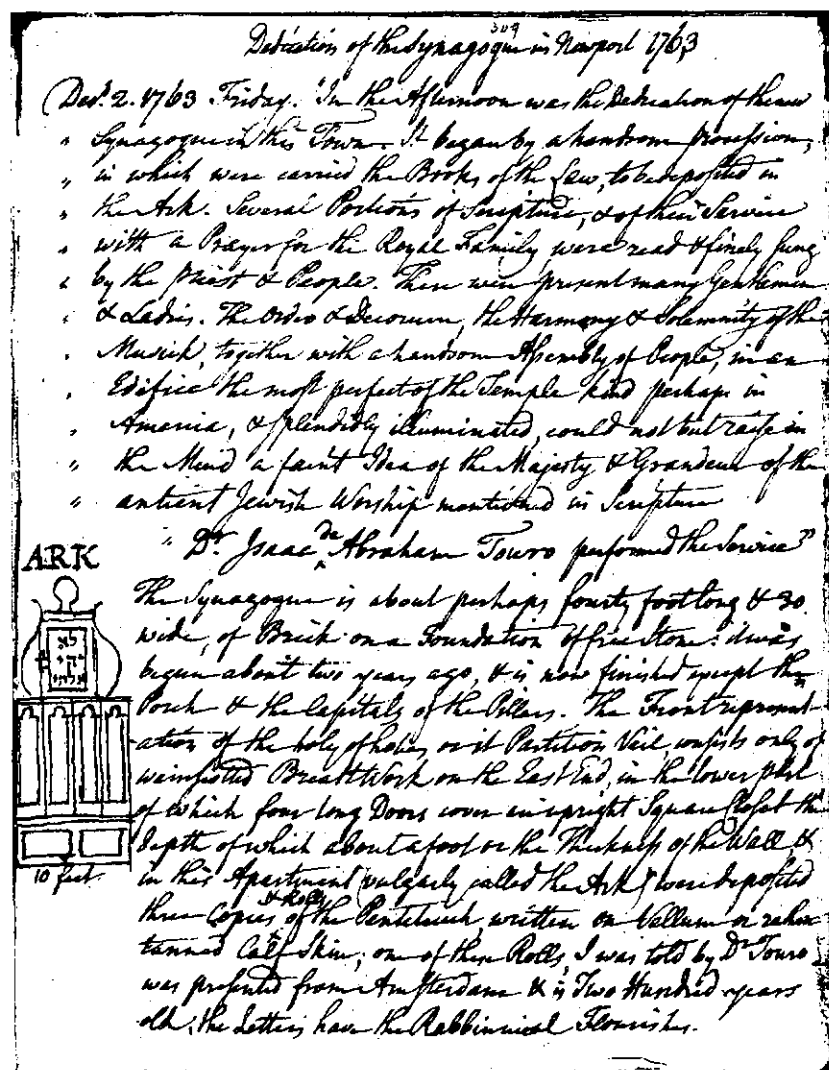 309
Dedication of the Synagogue in Newport 1763
Decr. 2. 1763 Friday. "In the Afternoon was the Dedication of the new
" Synagogue in this Town. It began by a handsom Procession,
" in which were carried the Books of the Law, to be deposited in
" the Ark. Several Portions of Scripture, & of their Service
" with a Prayer for the Royal Family, were read & finely sung
" by the Priest & People. There were present many Gentlemen
" & Ladies. The Order & Decorum, the Harmony & Solemnity of the
" Musick, together with a handsom Assembly of People, in an
" Edifice the most perfect of the Temple kind perhaps in
" America, & splendidly illuminated, could not but raise in
" the Mind a faint Idea of the Majesty & Grandeur of the
" antient Jewish Worship mentioned in Scripture
" Dr. Isaac de Abraham Touro performed the Service"
ARK
The Synagogue is about perhaps fourty foot long & 30
wide, of Brick on a Foundation of free Stone: it was
begun about two years ago, & is now finished except the
Porch & the Capitals of the Pillars. The Front represent-
ation of the holy of holies, or its Partition Veil, consists only of
wainscotted Breast Work on the East End, in the lower part
of which four long Doors cover an upright Square Closet the
depth of which about a foot or the Thickness of the Wall &
10 feet
in this Apartment (vulgarly called the Ark) were deposited
three Copies & Rolls of the Pentateuch, written on Vellum or rather
tanned Calf Skin; one of these Rolls, I was told by Dr. Touro
was presented from Amsterdam & is Two Hundred years
old; the Letters have the Rabbinical Flourishes.